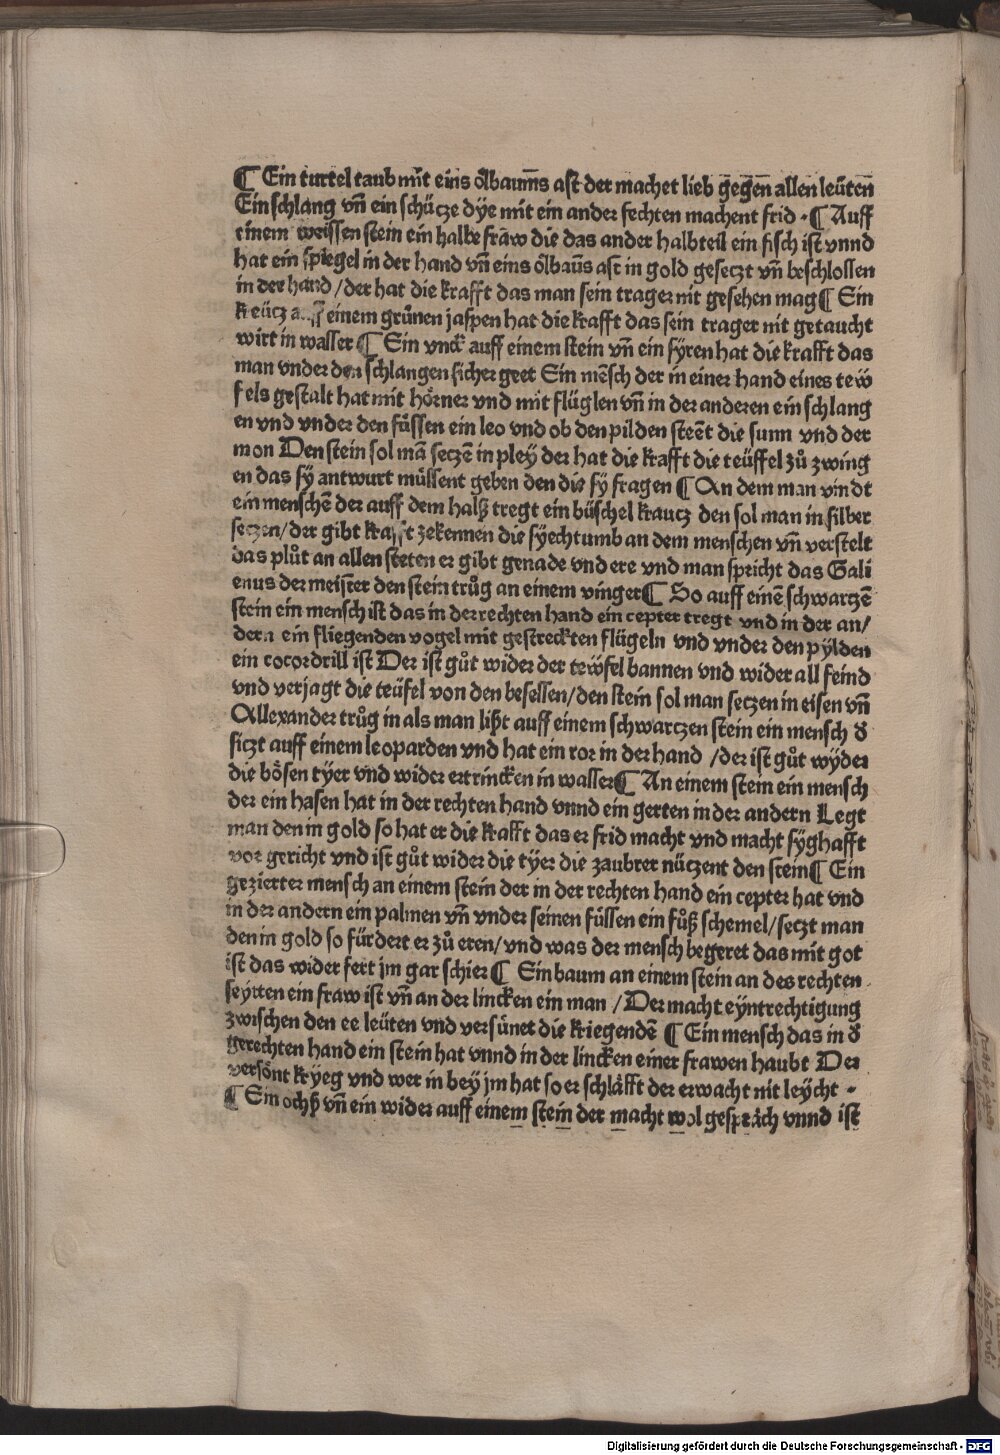 ¶ Ein turtel taub mit eins ölbaums ast der machet lieb gegen allen leüten
Ein schlang vn̄ ein schücze dÿe mit ein ander fechten machent frid · ¶ Auff
einem weissen stein ein halbe fraw die das ander halbteil ein fisch ist vnnd
hat ein spiegel in der hand vn̄ eins ölbaūs ast in gold gesetzt vn̄ beschlossen
in der hand / der hat die krafft das man sein trager nit gesehen mag ¶ Ein
kreücz auff einem grünen jaspen hat die krafft das sein trager nit getaucht
wirt in wasser ¶ Ein vnck auff einem stein vn̄ ein sÿren hat die krafft das
man vnder den schlangen sicher geet Ein mēsch der in einer hand eines tew
fels gestalt hat mit hörner vnd mit flüglen vn̄ in der anderen ein schlang
en vnd vnder den füssen ein leo vnd ob den pilden steēt die sunn vnd der
mon Den stein sol mā seczē in pleÿ der hat die krafft die teüffel zů zwing
en das sÿ antwurt müssent geben den die sÿ fragen ¶ An dem man vindt
ein menschē der auff dem halß tregt ein büschel kraucz den sol man in silber
seczen / der gibt krafft zekennen die sÿechtumb an dem menschen vn̄ verstelt
das plůt an allen steten er gibt genade vnd ere vnd man spricht das Gali
enus der meister den stein trůg an einem vinger ¶ So auff einē schwartzē
stein ein mensch ist das in der rechten hand ein cepter tregt vnd in der an/
dern ein fliegenden vogel mit gestreckten flügeln vnd vnder den pÿlden
ein cocordrill ist Der ist gůt wider der tewfel bannen vnd wider all feind
vnd verjagt die teüfel von den besessen / den stein sol man seczen in eisen vn̄
Allexander trůg in als man lißt auff einem schwartzen stein ein mensch d̕
siczt auff einem leoparden vnd hat ein ror in der hand / der ist gůt wÿder
die bösen tÿer vnd wider ertrincken in wasser ¶ An einem stein ein mensch
der ein hasen hat in der rechten hand vnnd ein gerten in der andern Legt
man den in gold so hat er die krafft das er frid macht vnd macht sÿghafft
vor gericht vnd ist gůt wider die tÿer die zaubrer nüczent den stein ¶ Ein
gezierter mensch an einem stein der in der rechten hand ein cepter hat vnd
in der andern ein palmen vn̄ vnder seinen füssen ein fůß schemel / seczt man
den in gold so fürdert er zů eren / vnd was der mensch begeret das mit got
ist das wider fert jm gar schier ¶ Ein baum an einem stein an des rechten
seÿtten ein fraw ist vn̄ an der lincken ein man / Der macht eÿntrechtigung
zwischen den ee leüten vnd versünet die kriegendē ¶ Ein mensch das in d̕
gerechten hand ein stein hat vnnd in der lincken einer frawen haubt Der
versönt krÿeg vnd wer in beÿ jm hat so er schläfft der erwacht nit leÿcht ·
¶ Ein ochß vn̄ ein wider auff einem stein der macht wol gespräch vnnd ist
Digitalisierung gefördert durch die Deutsche Forschungsgemeinschaft - DFG